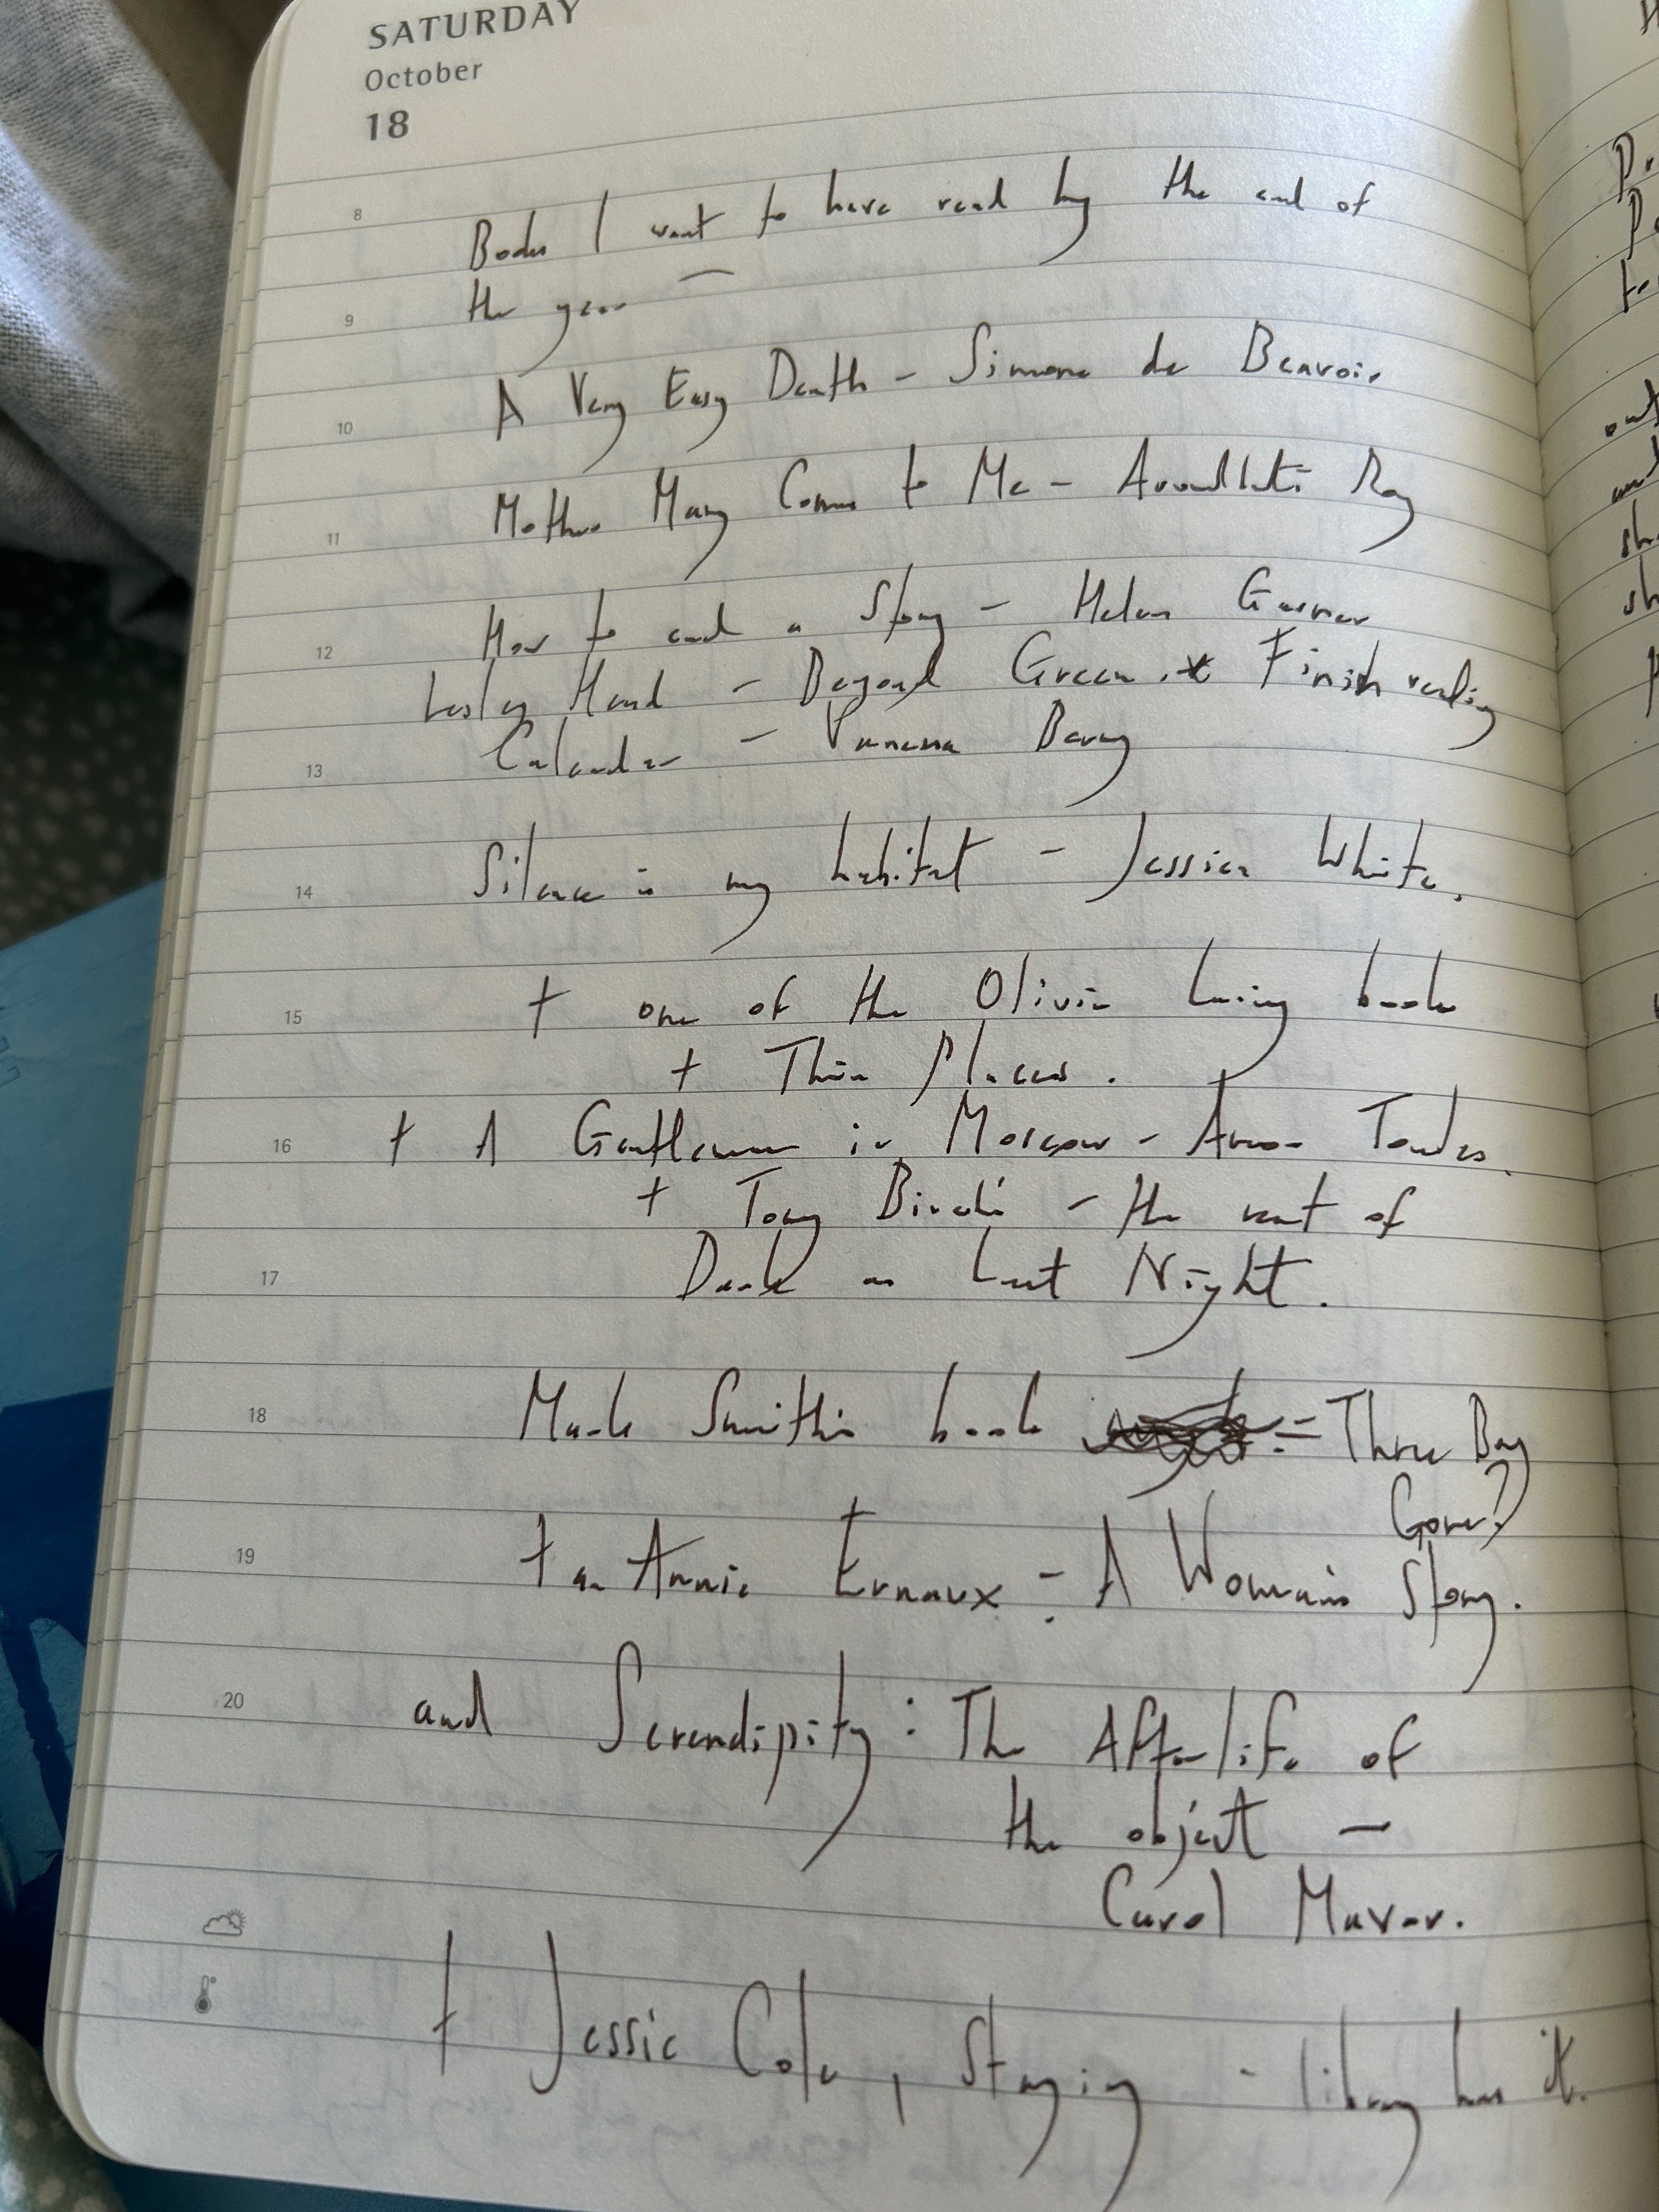 SATURDAY
October
18
8
Books I want to have read by the end of
9
the year —
A Very Easy Death - Simone de Beavoir
10
Mother Mary Comes to Me - Arundhati Roy
11
How to end a Story - Helen Garner
12
Lesley Head - Beyond Green * Finish reading
Calendar - Vanessa Berry
13
Silence is my habitat - Jessica White.
14
+ one of the Olivia Laing books
15
+ Thin Places.
+ A Gentleman in Moscow - Amor Towles.
16
+ Tony Birch's - the rest of
Dark as Last Night.
17
Mark Smith's book = Three Boys
18
Gone?
+ an Annie Ernaux = A Woman's Story.
19
and Serendipity: The Afterlife of
20
the object —
Carol Mavor.
+ Jessie Cole, Staying - library has it.